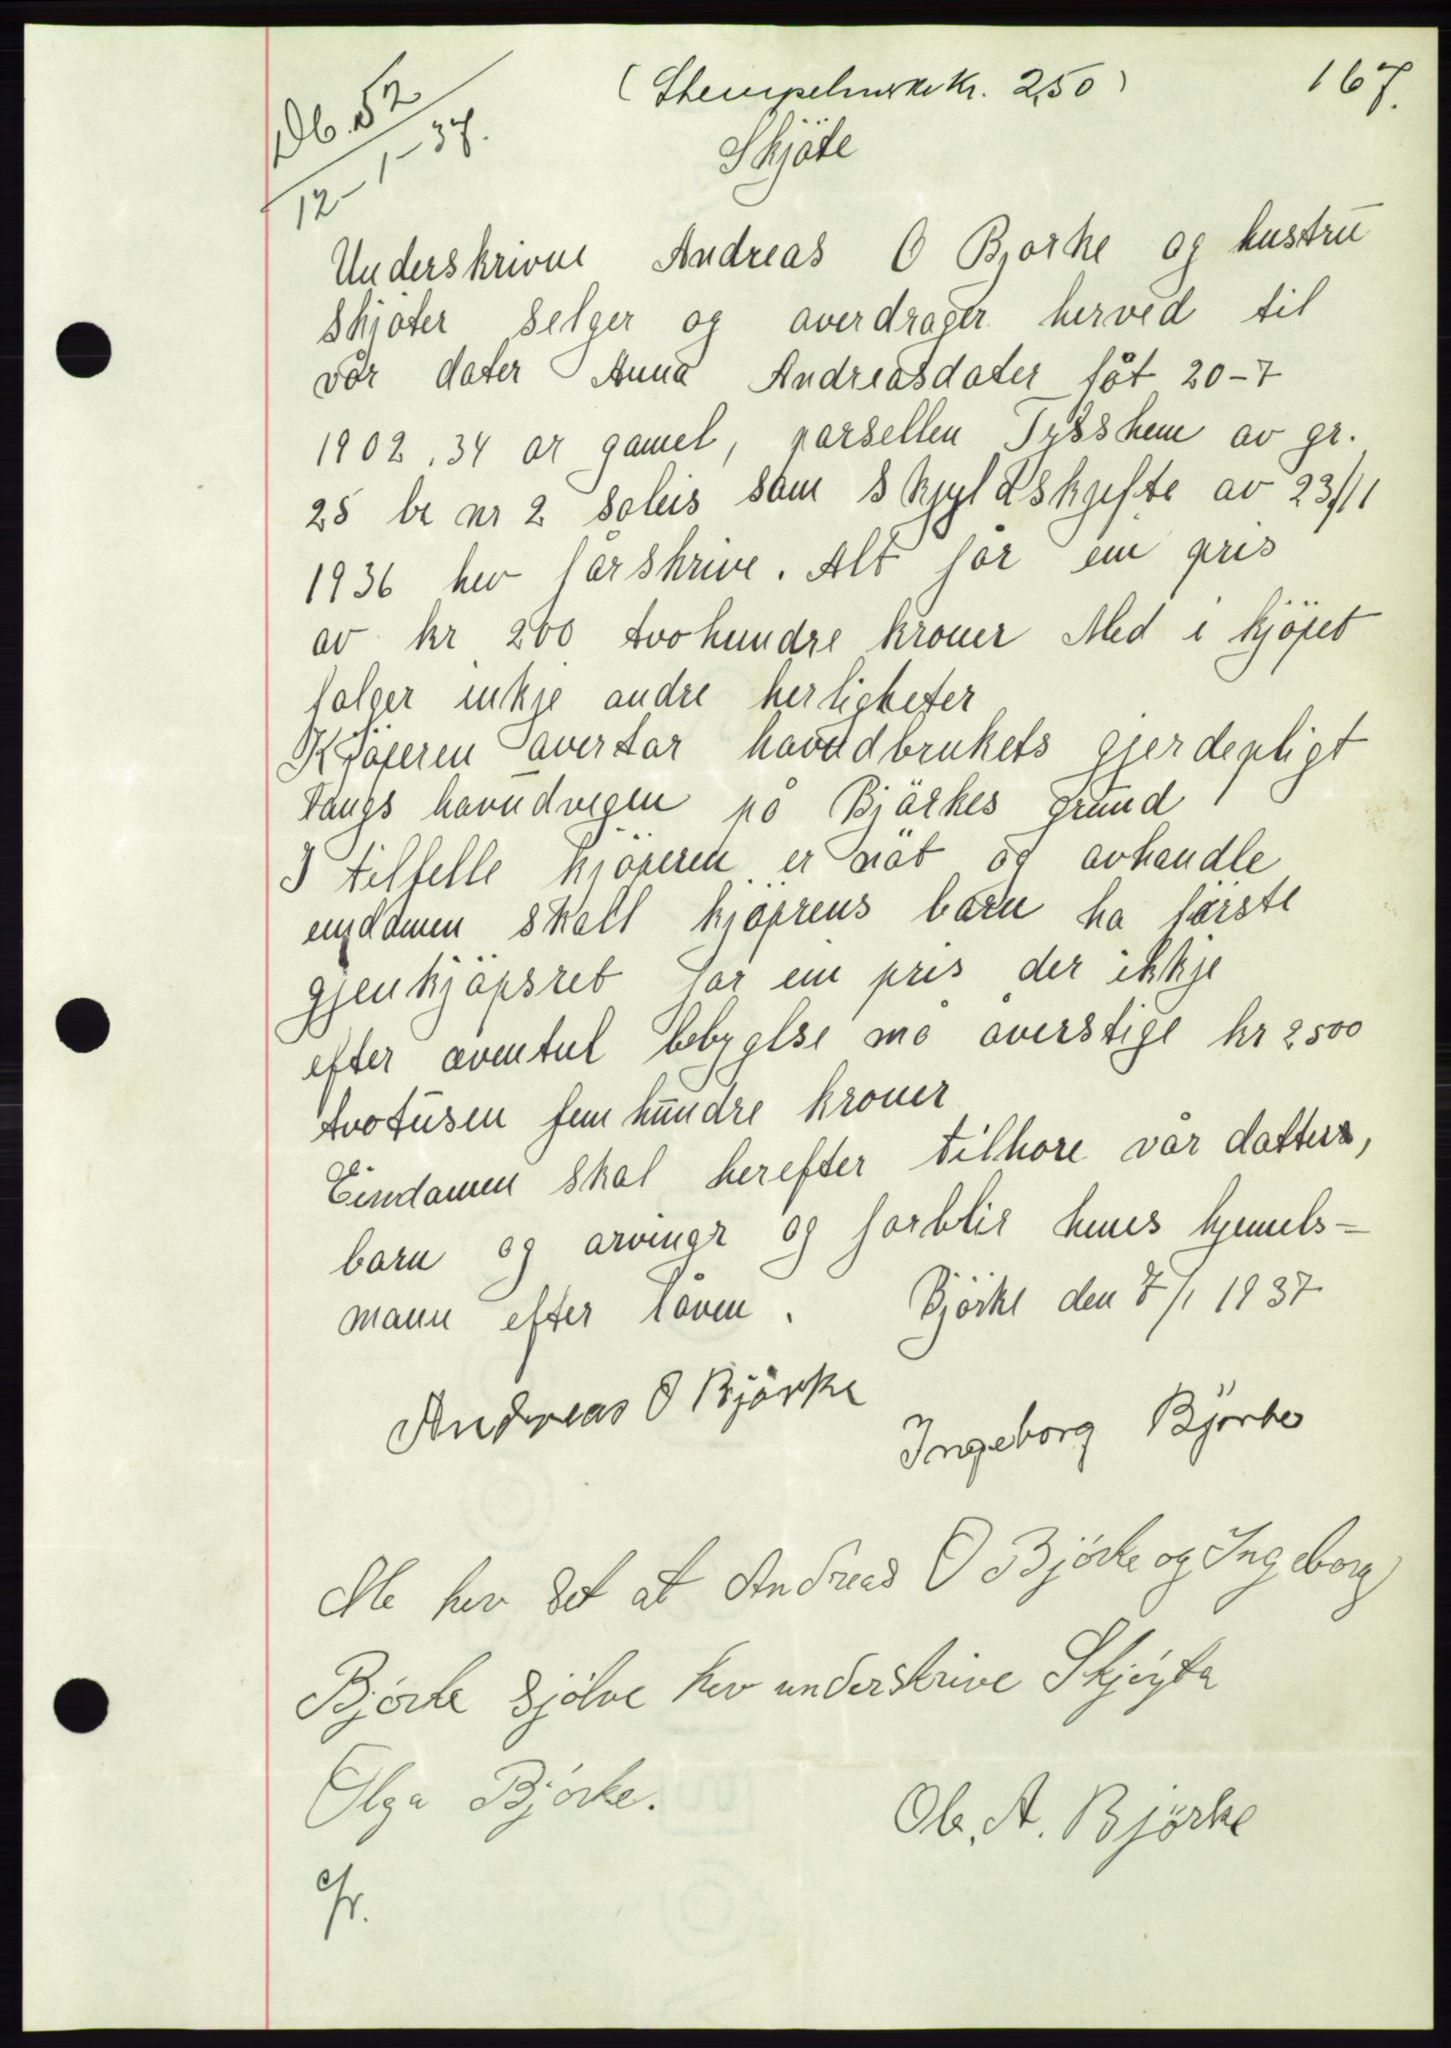 Db. 52
12-1-37.
(Stempelmerke Kr. 2,50)
167.
Skjöte
Underskrivne Andreas O Bjorke og hustru
skjöter selger og averdrager herved til
vår dater Anna Andreasdater föt 20-7
1902. 34 år gamel, parsellen Tysshem av gr.
25 br nr 2 soleis som skyldskyfte av 23/11
1936 hev förskrive. Alt för ein pris
av kr 200 tvohundre kroner Med i kjöpet
folger inkje andre herligheter
Kjöperen avertar havudbrukets gjerdepligt
langs havudvegen på Björkes grund
I tilfelle kjöperen er nöt og avhandle
eiendomen skall kjöprens barn ha förste
gjenkjöpsret for ein pris der ikkje
efter eventul bebyglse må överstige kr 2500
tvotusen fem hundre kroner
Eindomen skal herefter tilhore vår datters,
barn og arvingr og forblir henes hjemels-
mann efter loven. Björke den 7/1 1937
Andreas O Björke
Ingeborg Björke
Me hev set at Andreas O Björke og Ingeborg
Björke sjölve hev underskrive Skjöyta
Olga Björke.
Ole. A. Björke